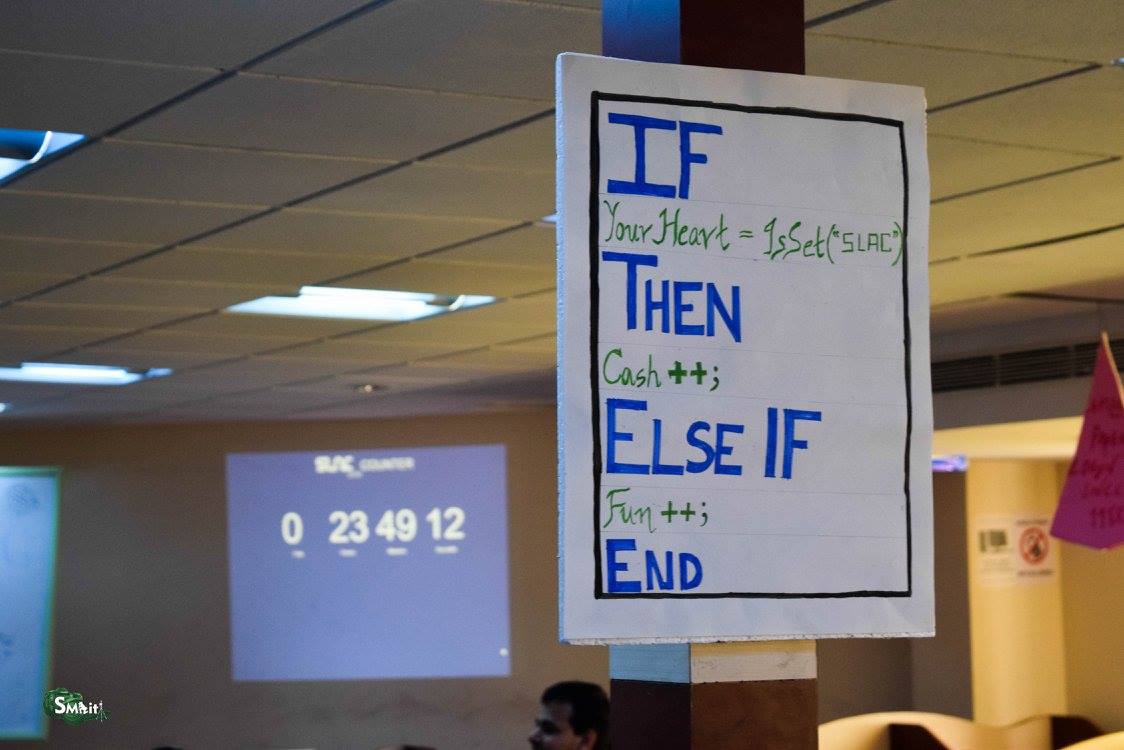 IF
Your Heart = IsSet("SLAC")
THEN
Cash ++;
ELSE IF
Fun ++;
END
SLAC COUNTER
0 23 49 12
SMRiti